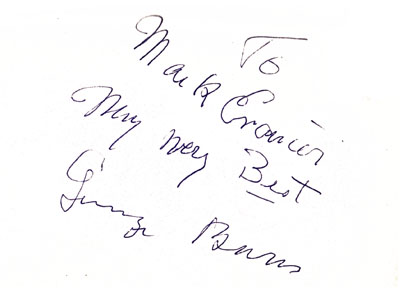 To
Mark
My very Best
George Burns